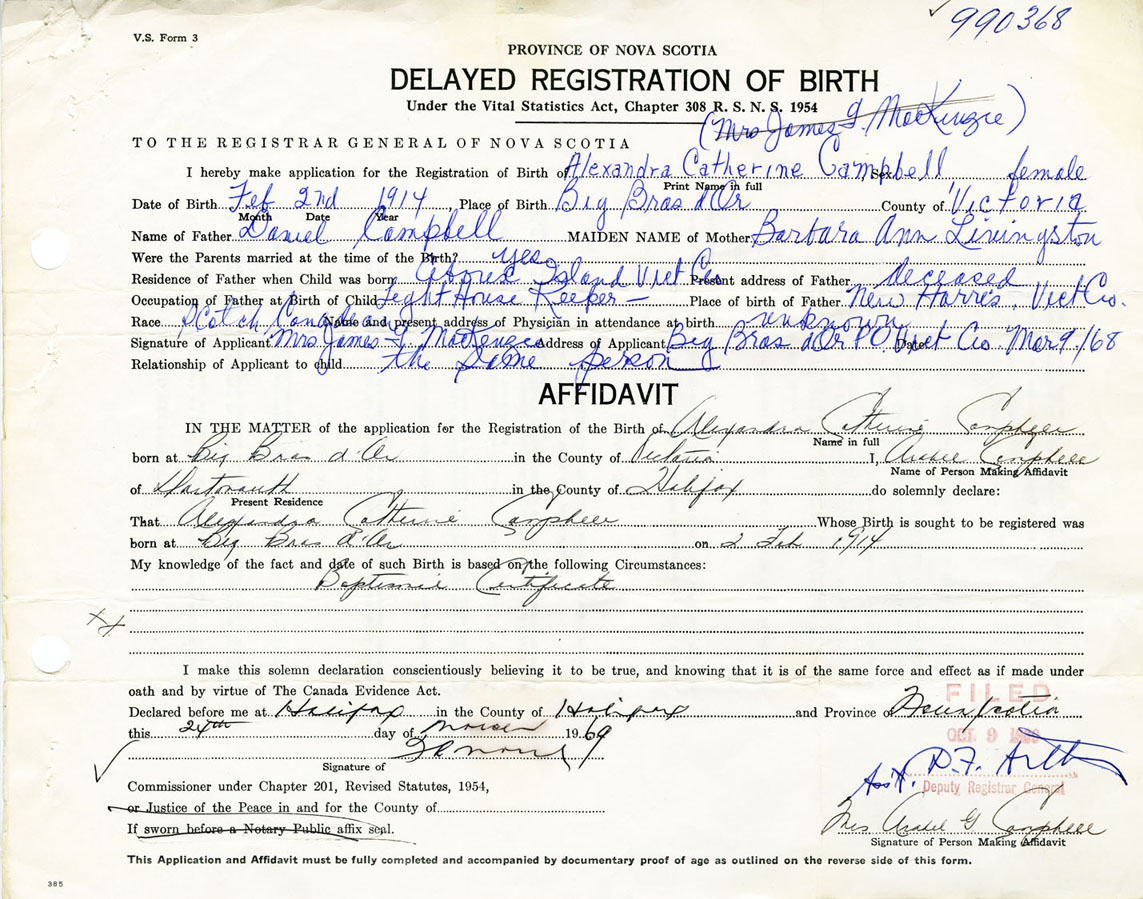 990368
V.S. Form 3
PROVINCE OF NOVA SCOTIA
DELAYED REGISTRATION OF BIRTH
Under the Vital Statistics Act, Chapter 308 R. S. N. S. 1954
(Mrs James G. MacKenzie)
TO THE REGISTRAR GENERAL OF NOVA SCOTIA
I hereby make application for the Registration of Birth of Alexandra Catherine Campbell Sex female
Print Name in full
Date of Birth Feb 2nd 1914 Place of Birth Big Bras d'Or County of Victoria
Month Date Year
Name of Father Daniel Campbell MAIDEN NAME of Mother Barbara Ann Livingston
Were the Parents married at the time of the Birth? yes
Residence of Father when Child was born Island Vict Co Present address of Father deceased
Occupation of Father at Birth of Child Light House Keeper — Place of birth of Father New Harris, Vict Co.
Race Scotch Canadean Name and present address of Physician in attendance at birth unknown
Signature of Applicant Mrs James G. MacKenzie Address of Applicant Big Bras d'Or PO Vict Co Date Mar 9/68
Relationship of Applicant to child the Same person
AFFIDAVIT
IN THE MATTER of the application for the Registration of the Birth of Alexandra Catherine Campbell
Name in full
born at Big Bras d'Or in the County of Victoria I, Campbell
Name of Person Making Affidavit
of Dartmouth in the County of Halifax do solemnly declare:
Present Residence
That Alexandra Catherine Campbell Whose Birth is sought to be registered was
born at Big Bras d'Or on 2 Feb 1914
My knowledge of the fact and date of such Birth is based on the following Circumstances:
Baptismal Certificate
I make this solemn declaration conscientiously believing it to be true, and knowing that it is of the same force and effect as if made under
oath and by virtue of The Canada Evidence Act.
FILED
Declared before me at Halifax in the County of Halifax and Province of Nova Scotia
this 24th day of 1969
OCT 9
Signature of
Ass't.
Deputy Registrar General
Commissioner under Chapter 201, Revised Statutes, 1954,
or Justice of the Peace in and for the County of
If sworn before a Notary Public affix seal.
Mrs G Campbell
Signature of Person Making Affidavit
This Application and Affidavit must be fully completed and accompanied by documentary proof of age as outlined on the reverse side of this form.
385